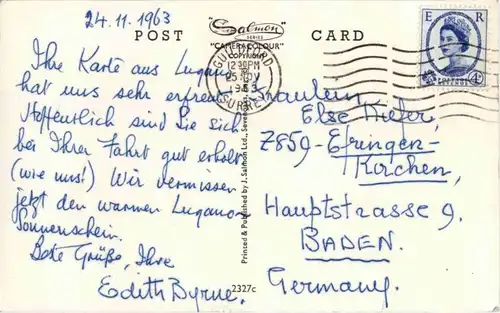 24.11.1963
POST
Salmon
SERIES
"CAMERACOLOUR"
COPYRIGHT
CARD
GUILDFORD
12 30 PM
25 NOV
1963
SURREY
E R
4D
Ihre Karte aus Lugano
hat uns sehr erfreut.
Hoffentlich sind Sie sich
bei Ihrer Fahrt gut erholt
(wie uns!) Wir vermissen
jetzt den warmen Luganor
Sonnenschein.
Beste Grüße, Ihre
Edith Byrne.
Printed & Published by J. Salmon Ltd., Sevenoaks
2327c
Fräulein
Else Kiefer,
Z859-Efringen-
Kirchen,
Hauptstrasse 9.
BADEN.
Germany.